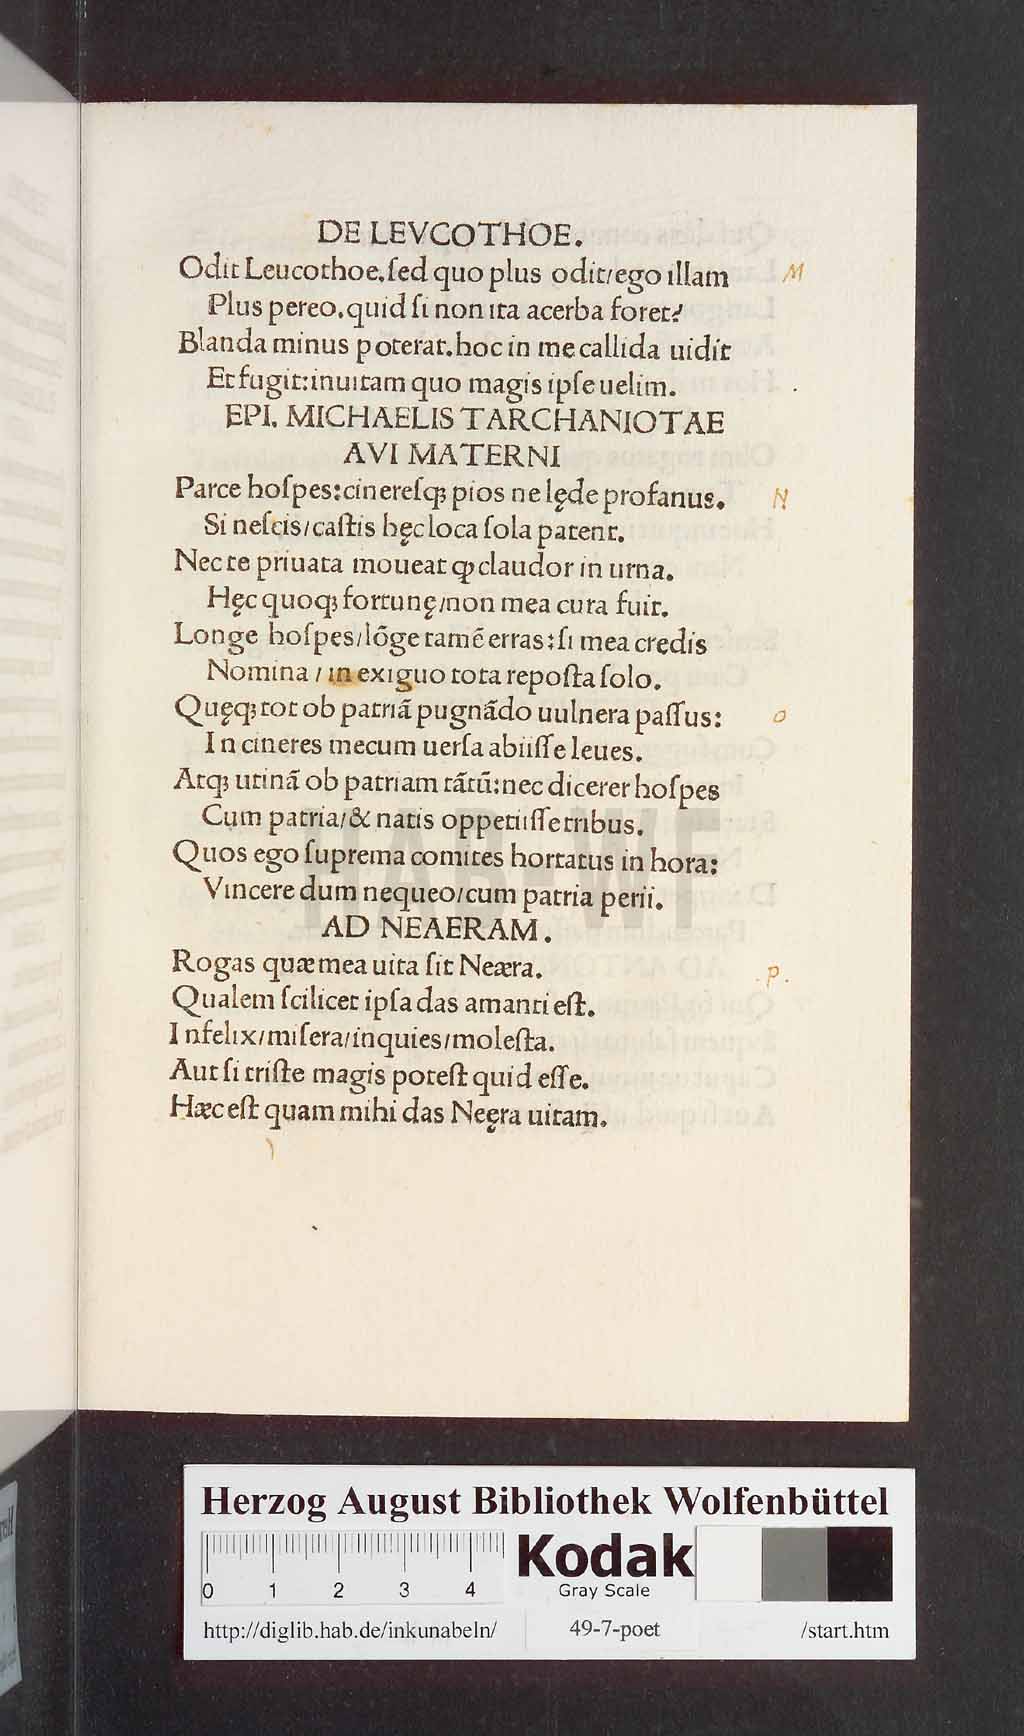 DE LEVCOTHOE.
Odit Leucothoe.ſed quo plus odit/ego illam M
Plus pereo.quid ſi non ita acerba foret?
Blanda minus poterat.hoc in me callida uidit
Et fugit:inuitam quo magis ipſe uelim.
EPI. MICHAELIS TARCHANIOTAE
AVI MATERNI
Parce hoſpes:cinereſqꝫ pios ne lęde profanus. N
Si neſcis/caſtis hęc loca ſola patent.
Nec te priuata moueat ꝙ claudor in urna.
Hęc quoqꝫ fortunę/non mea cura fuit.
Longe hoſpes/lõge tamē erras:ſi mea credis
Nomina / in exiguo tota repoſta ſolo.
Quęqꝫ tot ob patriã pugnãdo uulnera paſſus: O
In cineres mecum uerſa abiiſſe leues.
Atqꝫ utinã ob patriam tãtũ:nec dicerer hoſpes
Cum patria/& natis oppetiiſſe tribus.
Quos ego ſuprema comites hortatus in hora:
Vincere dum nequeo/cum patria perii.
AD NEAERAM.
Rogas quæ mea uita ſit Neæra. .p.
Qualem ſcilicet ipſa das amanti eſt.
Infelix/miſera/inquies/moleſta.
Aut ſi triſte magis poteſt quid eſſe.
Hæc eſt quam mihi das Neęra uitam.
HAB WF
Herzog August Bibliothek Wolfenbüttel
0 1 2 3 4
Kodak
Gray Scale
http://diglib.hab.de/inkunabeln/ 49-7-poet /start.htm